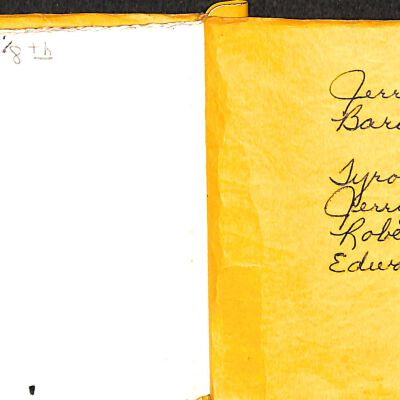 8th
Jerr
Bar
Tyro
Jerr
Robe
Edwa